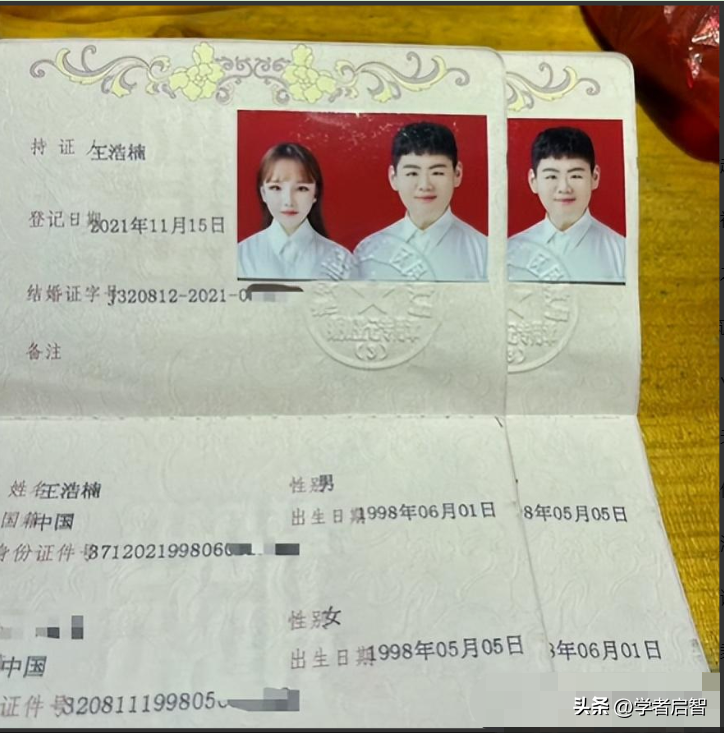 持证人 王浩楠
登记日期 2021年11月15日
结婚证字号 J320812-2021-0
备注
姓名 王浩楠 性别 男
国籍 中国 出生日期 1998年06月01日 8年05月05日
身份证件号 3712021998060
性别 女
中国 出生日期 1998年05月05日 8年06月01日
证件号 320811199805
头条 @学者启智